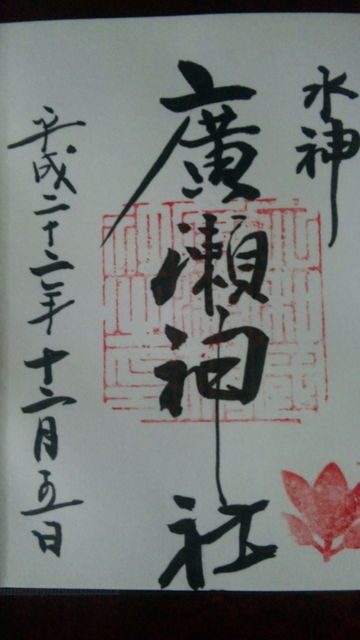 水神
廣瀬神社
平成二十二年十二月五日